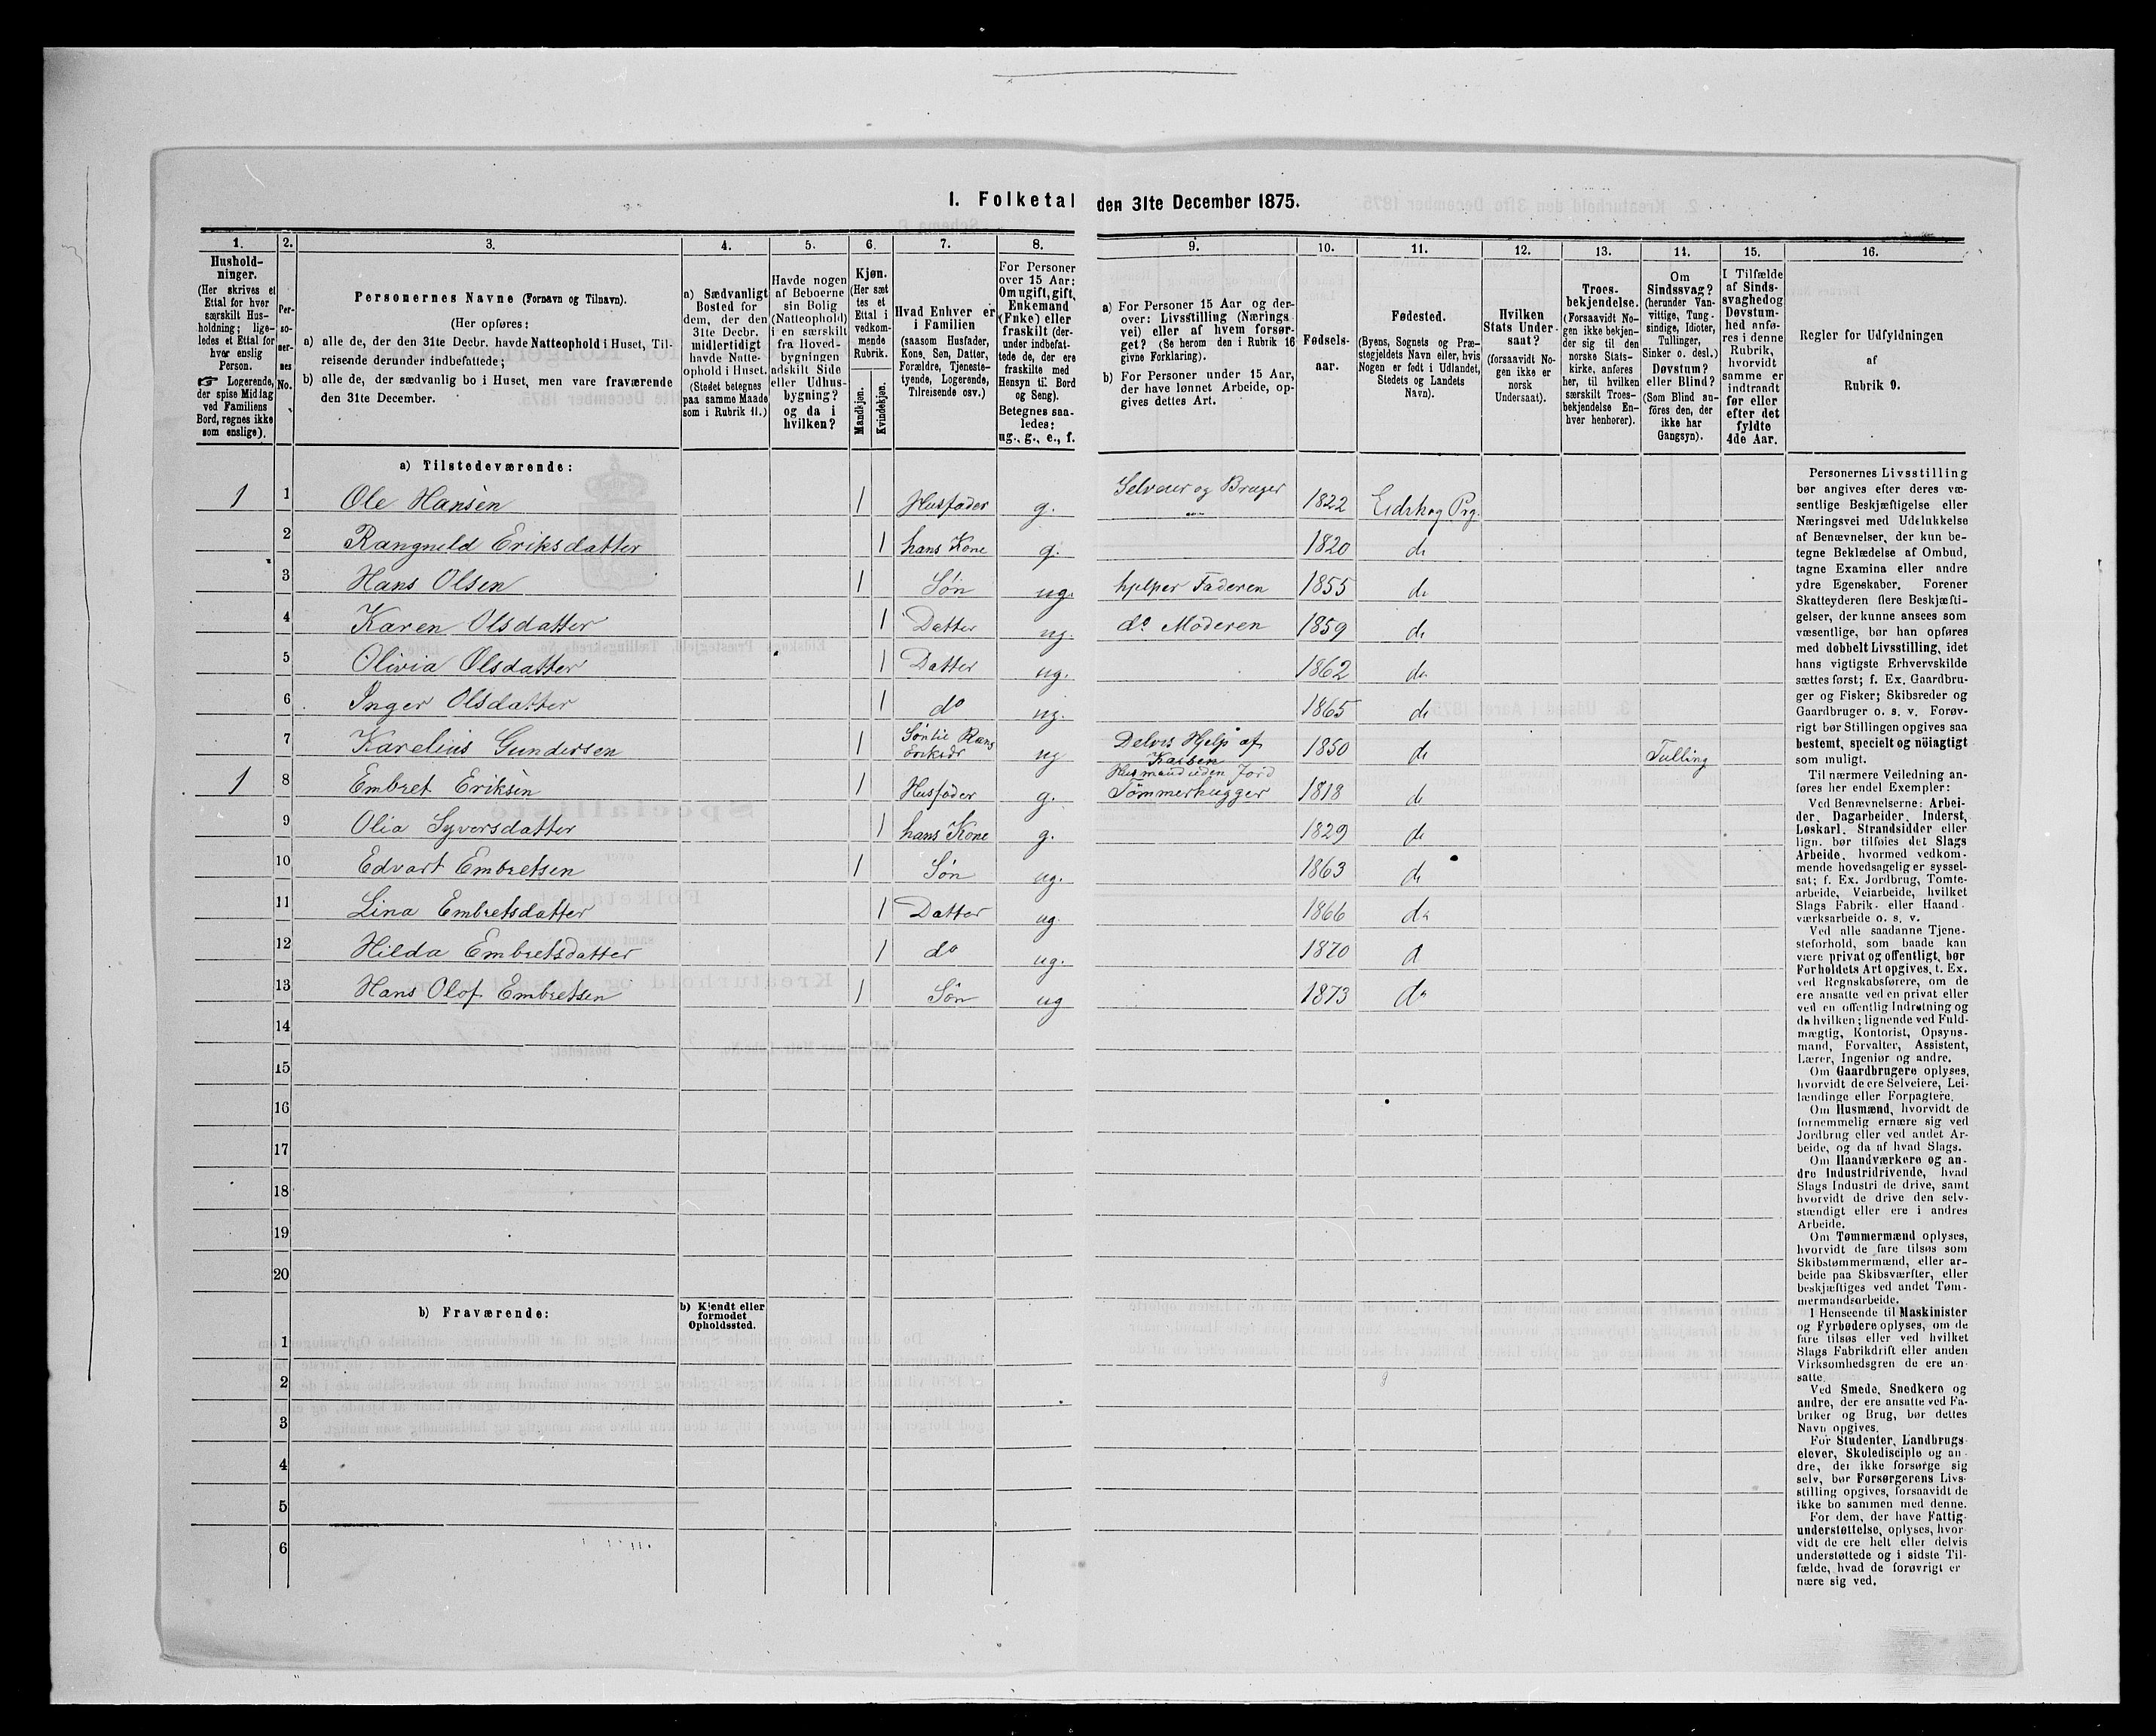 I. Folketal den 31te December 1875.
1.
Hushold-
ninger.
(Her skrives et
Ettal for hver
særskilt Hus-
holdning; lige-
ledes et Ettal for
hver enslig
Person.
☞ Logerende,
der spise Middag
ved Familiens
Bord, regnes ikke
som enslige).
2.
Per-
so-
ner-
nes
No.
3.
Personernes Navne (Fornavn og Tilnavn).
(Her opføres:
a) alle de, der den 31te Decbr. havde Natteophold i Huset, Til-
reisende derunder indbefattede;
b) alle de, der sædvanlig bo i Huset, men vare fraværende
den 31te December.
4.
a) Sædvanligt
Bosted for
dem, der den
31te Decbr.
midlertidigt
havde Natte-
ophold i Huset.
(Stedet betegnes
paa samme Maade
som i Rubrik 11.)
5.
Havde nogen
af Beboerne
sin Bolig
(Natteophold)
i en særskilt
fra Hoved-
bygningen
adskilt Side
eller Udhus-
bygning?
og da i
hvilken?
6.
Kjøn.
(Her sæt
tes et
Ettal i
vedkom-
mende
Rubrik.
Mandkjøn.
Kvindekjøn.
7.
Hvad Enhver er
i Familien
(saasom Husfader,
Kone, Søn, Datter,
Forældre, Tjeneste-
tyende, Logerende,
Tilreisende osv.)
8.
For Personer
over 15 Aar:
Om ugift, gift,
Enkemand
(Enke) eller
fraskilt (der-
under indbefat-
tede de, der ere
fraskilte med
Hensyn til Bord
og Seng).
Betegnes saa-
ledes:
ug., g., e., f.
9.
a) For Personer 15 Aar og der-
over: Livsstilling (Nærings
vei) eller af hvem forsør-
get? (Se herom den i Rubrik 16
givne Forklaring).
b) For Personer under 15 Aar,
der have lønnet Arbeide, op-
gives dettes Art.
10.
Fødsels-
aar.
11.
Fødested.
(Byens, Sognets og Præ-
stegjeldets Navn eller, hvis
Nogen er født i Udlandet,
Stedets og Landets
Navn).
12.
Hvilken
Stats Under-
saat?
(forsaavidt No-
gen ikke er
norsk
Undersaat).
13.
Troes-
bekjendelse.
(Forsaavidt No-
gen ikke bekjen-
der sig til den
norske Stats-
kirke, anføres
her, til hvilken
særskilt Troes-
bekjendelse En-
hver henhører).
14.
Om
Sindssvag?
(herunder Van-
vittige, Tung-
sindige, Idioter,
Tullinger,
Sinker o. desl.)
Døvstum?
eller Blind?
(Som Blind an-
føres den, der
ikke har
Gangsyn).
15.
I Tilfælde
af Sinds-
svaghed og
Døvstum-
hed anfø-
res i denne
Rubrik,
hvorvidt
samme er
indtraadt
før eller
efter det
fyldte
4de Aar.
16.
Regler for Udfyldningen
af
Rubrik 9.
a) Tilstedeværende:
1 1 Ole Hansen 1 Husfader g. Selveier og Bruger 1822 Eidskog Prg.
2 Rangneld Eriksdatter 1 hans Kone g. 1820 do
3 Hans Olsen 1 Søn ug. hjelper Faderen 1855 do
4 Karen Olsdatter 1 Datter ug. do Moderen 1859 do
5 Olivia Olsdatter 1 Datter ug. 1862 do
6 Inger Olsdatter 1 do ug. 1865 do
7 Karelius Gundersen 1 Søn til Rans Eriksdr ug Delvis Hjelp af Kassen 1850 do Tulling
1 8 Embret Eriksen 1 Husfader g. Husmand uden Jord Tømmerhugger 1818 do
9 Olia Syversdatter 1 hans Kone g. 1829 do
10 Edvart Embretsen 1 Søn ug. 1863 do
11 Lina Embretsdatter 1 Datter ug. 1866 do
12 Hilda Embretsdatter 1 do ug. 1870 d
13 Hans Olof Embretsen 1 Søn ug 1873 do
14
15
16
17
18
19
20
b) Fraværende:
b) Kjendt eller
formodet
Opholdssted.
1
2
3
4
5
6
Personernes Livsstilling
bør angives efter deres væ-
sentlige Beskjæftigelse eller
Næringsvei med Udelukkelse
af Benævnelser, der kun be-
tegne Beklædelse af Ombud,
tagne Examina eller andre
ydre Egenskaber. Forener
Skatteyderen flere Beskjæfti-
gelser, der kunne ansees som
væsentlige, bør han opføres
med dobbelt Livsstilling, idet
hans vigtigste Erhvervskilde
sættes først; f. Ex. Gaardbru-
ger og Fisker; Skibsreder og
Gaardbruger o. s. v. Forøv-
rigt bør Stillingen opgives saa
bestemt, specielt og nöiagtigt
som muligt.
Til nærmere Veiledning an-
føres her endel Exempler:
Ved Benævnelserne: Arbei-
der, Dagarbeider, Inderst,
Løskarl, Strandsidder eller
lign. bør tilføies det Slags
Arbeide, hvormed vedkom-
mende hovedsagelig er syssel-
sat; f. Ex. Jordbrug, Tomte-
arbeide, Veiarbeide, hvilket
Slags Fabrik- eller Haand-
værksarbeide o. s. v.
Ved alle saadanne Tjene-
steforhold, som baade kan
være privat og offentligt, bør
Forholdets Art opgives, t. Ex.
ved Regnskabsførere, om de
ere ansatte ved en privat eller
ved en offentlig Indretning og
da hvilken; lignende ved Fuld-
mægtig, Kontorist, Opsyns-
mand, Forvalter, Assistent,
Lærer, Ingeniør og andre.
Om Gaardbrugere oplyses,
hvorvidt de ere Selveiere, Lei-
lændinge eller Forpagtere.
Om Husmænd, hvorvidt de
fornemmelig ernære sig ved
Jordbrug eller ved andet Ar-
beide, og da af hvad Slags.
Om Haandværkere og an-
dre Industridrivende, hvad
Slags Industri de drive, samt
hvorvidt de drive den selv-
stændigt eller ere i andres
Arbeide.
Om Tømmermænd oplyses,
hvorvidt de fare tilsøs som
Skibstømmermænd, eller ar-
beide paa Skibsværfter, eller
beskjæftiges ved andet Tøm-
mermandsarbeide.
I Henseende til Maskinister
og Fyrbødere oplyses, om de
fare tilsøs eller ved hvilket
Slags Fabrikdrift eller anden
Virksomhedsgren de ere an-
satte.
Ved Smede, Snedkere og
andre, der ere ansatte ved Fa-
briker og Brug, bør dettes
Navn opgives.
For Studenter, Landbrugs-
elever, Skoledisciple og an-
dre, der ikke forsørge sig
selv, bør Forsørgerens Livs-
stilling opgives, forsaavidt de
ikke bo sammen med denne.
For dem, der have Fattig-
understøttelse, oplyses, hvor-
vidt de ere helt eller delvis
understøttede og i sidste Til-
fælde, hvad de forøvrigt er-
nære sig ved.